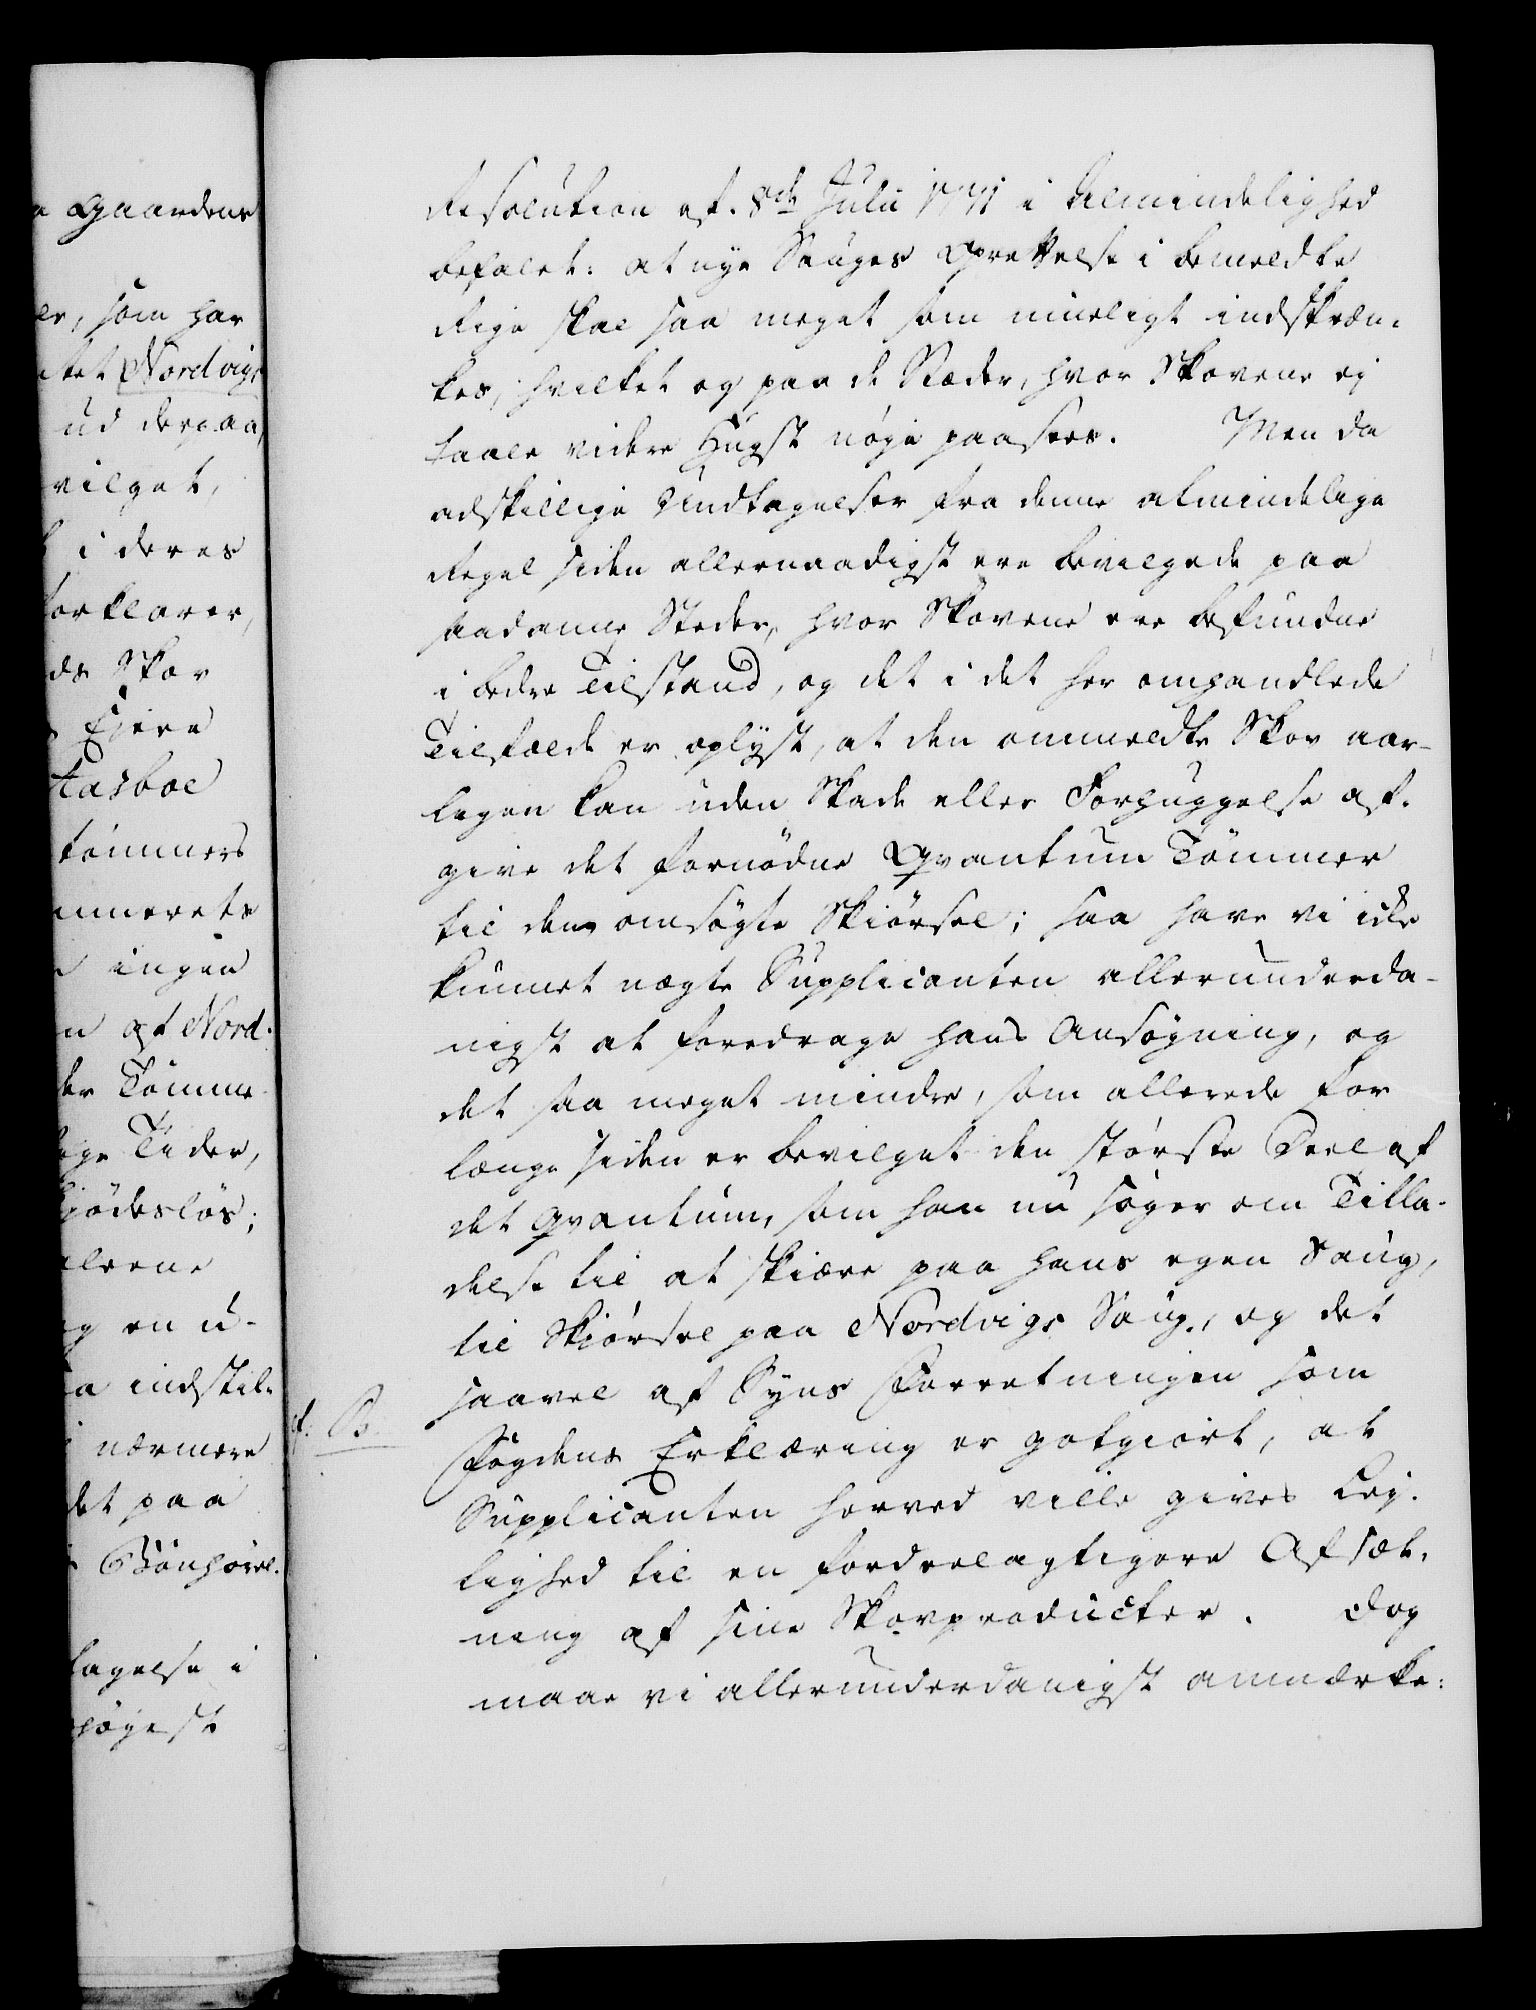 Gaardens
, som har
Nordvigs
ud derpaa,
vilget,
i deres
forklarer,
Skov
Eiere
Aasboe
tömmers
ingen
af Nord-
Tömme-
Tider,
en u-
indstil-
nærmere
det paa
Bönhörel-
tagelse i
högst
Resolution af 8de Julii 1771 i Almindelighed
befalet: at nye Sauges Oprettelse i bemeldte
Rige skal saa meget som mueligt indskræn-
kes, hvilket og paa de Stæder, hvor Skovene ej
taale videre Hugst nøje paasees. Men da
adskillige Undtagelser fra denne almindelige
Regel siden allernaadigst ere bevilgede paa
saadanne Steder, hvor Skovene ere befundne
i bedre Tilstand, og det i det her omhandlede
Tilfælde er oplyst, at den ommeldte Skov aar-
ligen kan uden Skade eller Forhuggelse af-
give det fornödne Qvantum Tömmer
til den omsögte Skiörsel; saa have vi ikke
kunnet nægte Supplicanten allerunderda-
nigst at foredrage hans Ansögning, og
det saa meget mindre, som allerede for
længe siden er bevilget den største Deel af
det Qvantum, som han nu søger om Tilla-
delse til at skiære paa hans egen Saug,
til Skiørsel paa Nordvigs Saug, og det
saavel af Syns Forretningen som
cf: B.
Fogdens Erklæring er gotgiort, at
Supplicanten herved ville gives Lej-
lighed til en fordeelagtigere Afsæt-
ning af sine Skovproducter. Dog
maae vi allerunderdanigst anmærke: